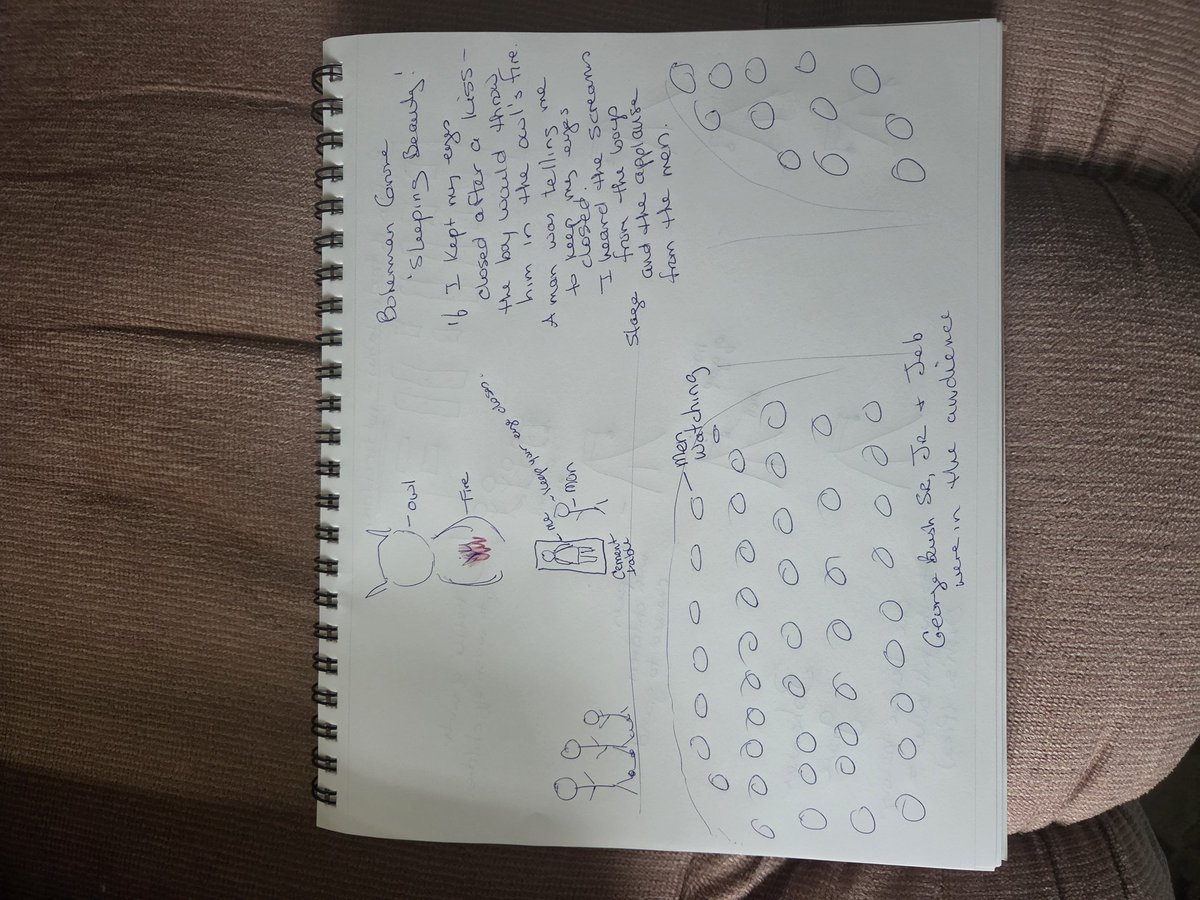 Bohemian Grove
'Sleeping Beauty'
If I kept my eyes
closed after a kiss -
the boy would throw
him in the owl's fire.
A man was telling me
to keep my eyes
closed.
I heard the screams
from the boys
and the applause
from the men.
- owl
- Fire
- me - keep your eyes closed.
- Man
Cement
table
Stage
Men
watching
George Bush SR, JR + Jeb
were in the audience